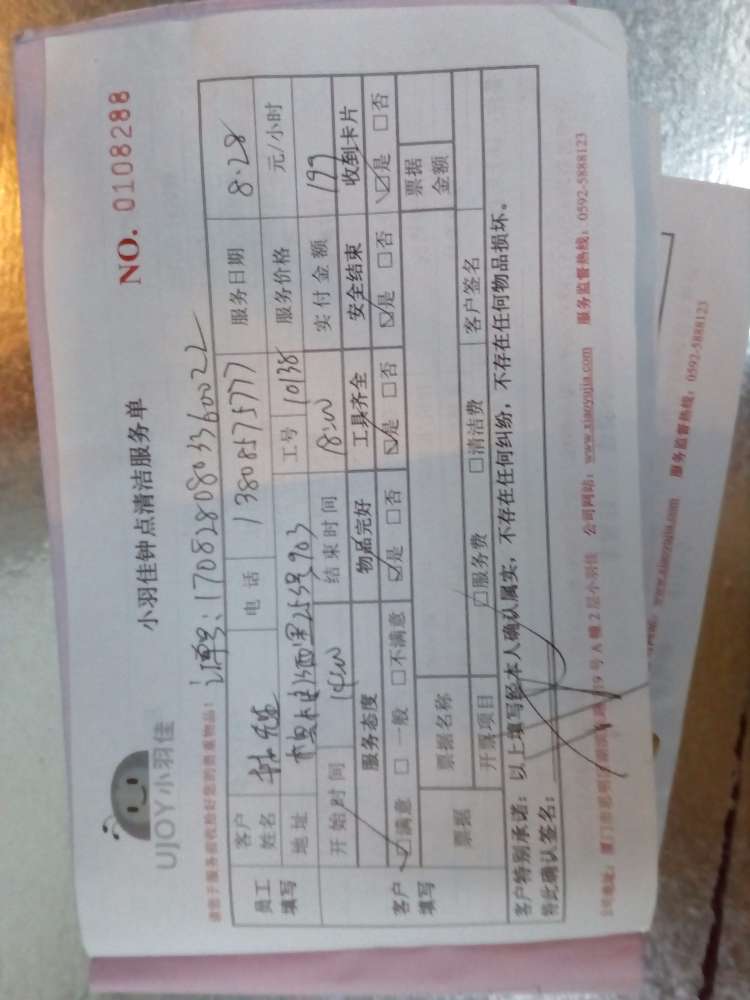 UJOY小羽佳
小羽佳钟点清洁服务单
NO. 0108288
请您于服务前收拾好您的贵重物品!
订单号:170828080336002
员工填写
客户姓名
电话 13808575777
服务日期 8.28
地址 25号903
工号 10138
服务价格 元/小时
开始时间 14:00
结束时间 18:00
实付金额 199
客户填写
服务态度 物品完好 工具齐全 安全结束 收到卡片
☑满意 □一般 □不满意 ☑是 □否 ☑是 □否 ☑是 □否 ☑是 □否
票据 票据名称 票据金额
开票项目 □服务费 □清洁费 客户签名
客户特别承诺:以上填写经本人确认属实,不存在任何纠纷,不存在任何物品损坏。
特此确认签名:
公司地址:厦门市思明区 9号A幢2层小羽佳 公司网站:www.xiaoyujia.com 服务监督热线:0592-5888123
www.xiaoyujia.com 服务监督热线:0592-5888123